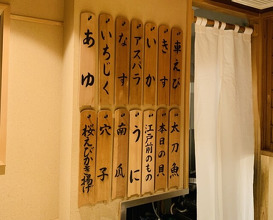 車えび
きす
いか
アスパラ
なす
いちじく
あゆ
太刀魚
本日の貝
江戸前のもの
うに
南瓜
穴子
桜えびかき揚げ